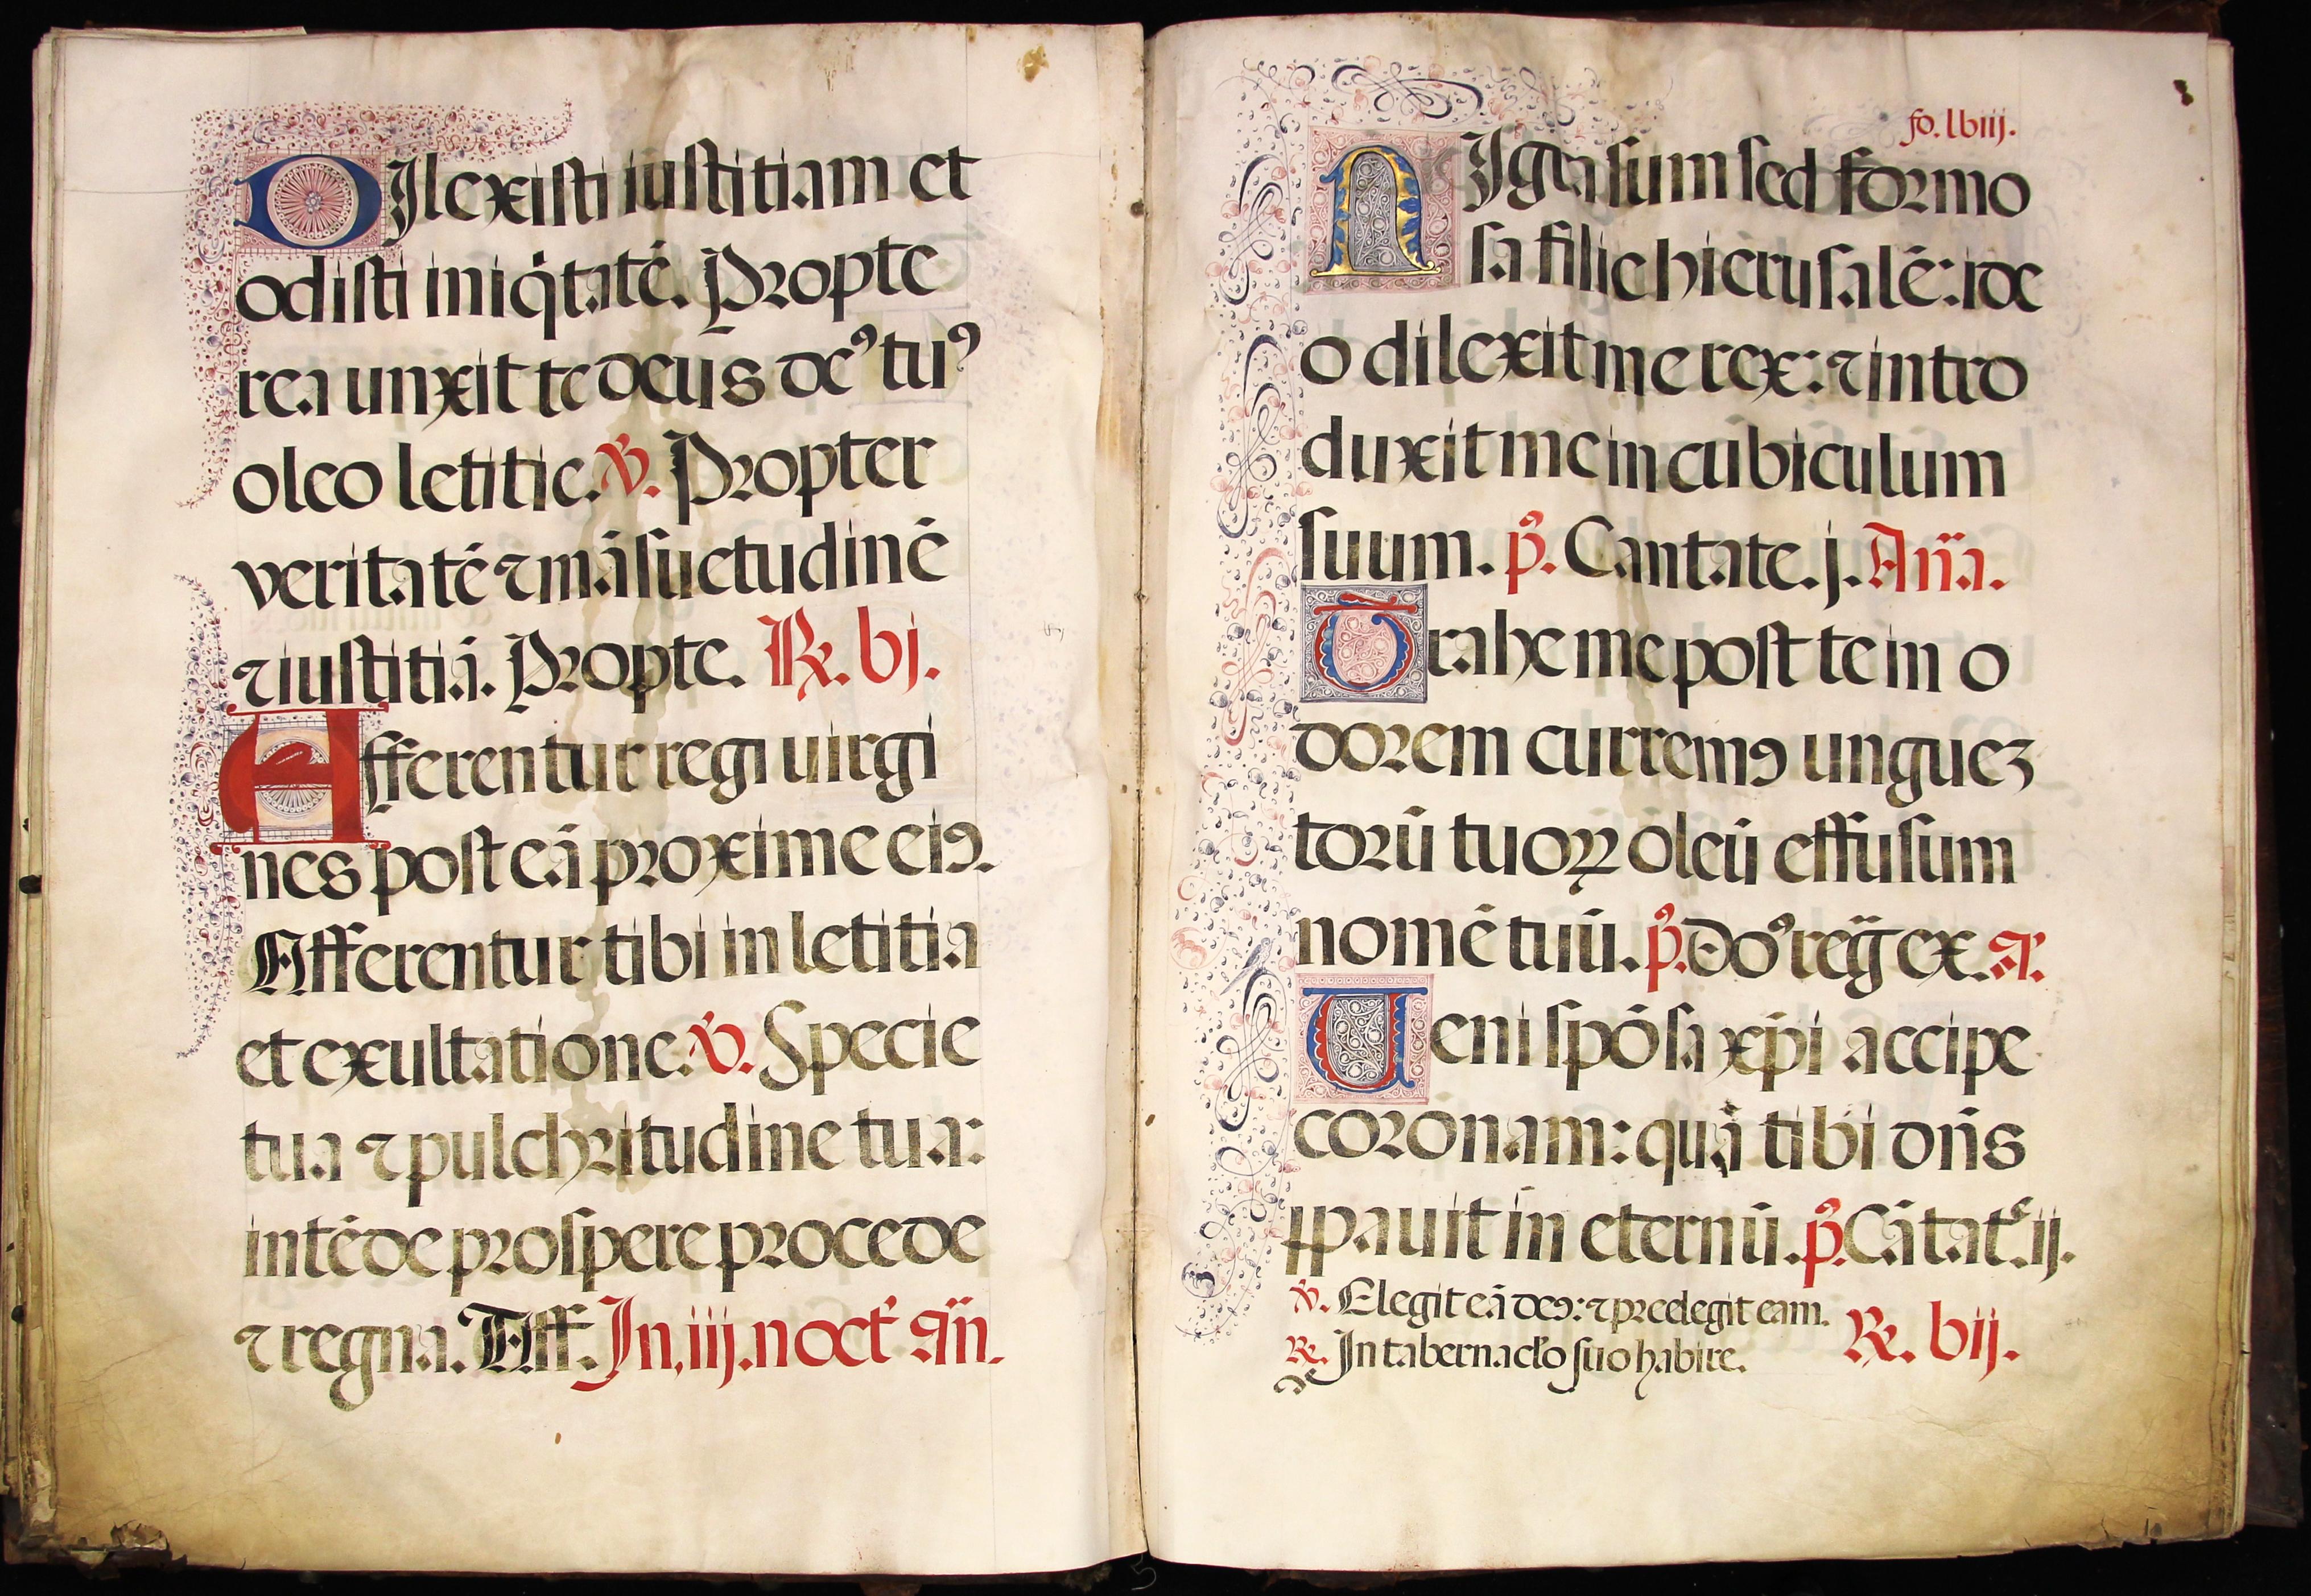 DIlexisti iustitiam et
odisti iniq̇tatē. Propte
rea unxit te deus deꝰ tuꝰ
oleo letitie. ℣. Propter
veritatē ⁊ māsuetudinē
⁊ iustitiā. Propte. ℟. bj.
Afferentur regi uirgi
nes post eā proxime eiꝰ.
Afferentur tibi in letitia
et exultatione. ℣. Specie
tua ⁊ pulchritudine tua:
intēde prospere procede
⁊ regna. Aff. In .iij. noct̉ añ.
fo. lbiij.
NIgra sum sed formo
sa filie hierusalē: ide
o dilexit me rex: ⁊ intro
duxit me in cubiculum
suum. p̄s. Cantate. j. Aña.
Trahe me post te in o
dorem curremꝰ unguez
torū tuoꝝ oleū effusum
nomē tuū. p̄s. Doꝰ reg̃ ex. añ.
Ueni spōsa xp̄i accipe
coronam: quā tibi dn̄s
p̄pauit in eternū. p̄s. Cātat̉. ij.
℣. Elegit eā deꝰ: ⁊ preelegit eam.
℟. In tabernac̄lo suo habit̉e. ℟. bij.